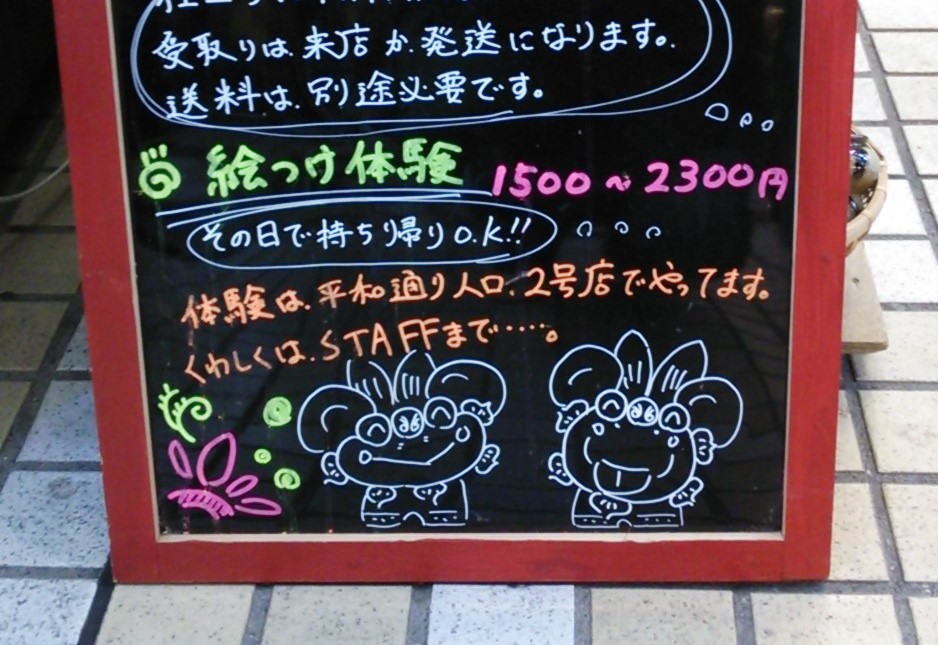 受取りは、来店か、発送になります。
送料は、別途必要です。
絵つけ体験 1500～2300円
その日で持ち帰りO.K!!
体験は、平和通り入口、2号店でやってます。
くわしくは、STAFFまで……。